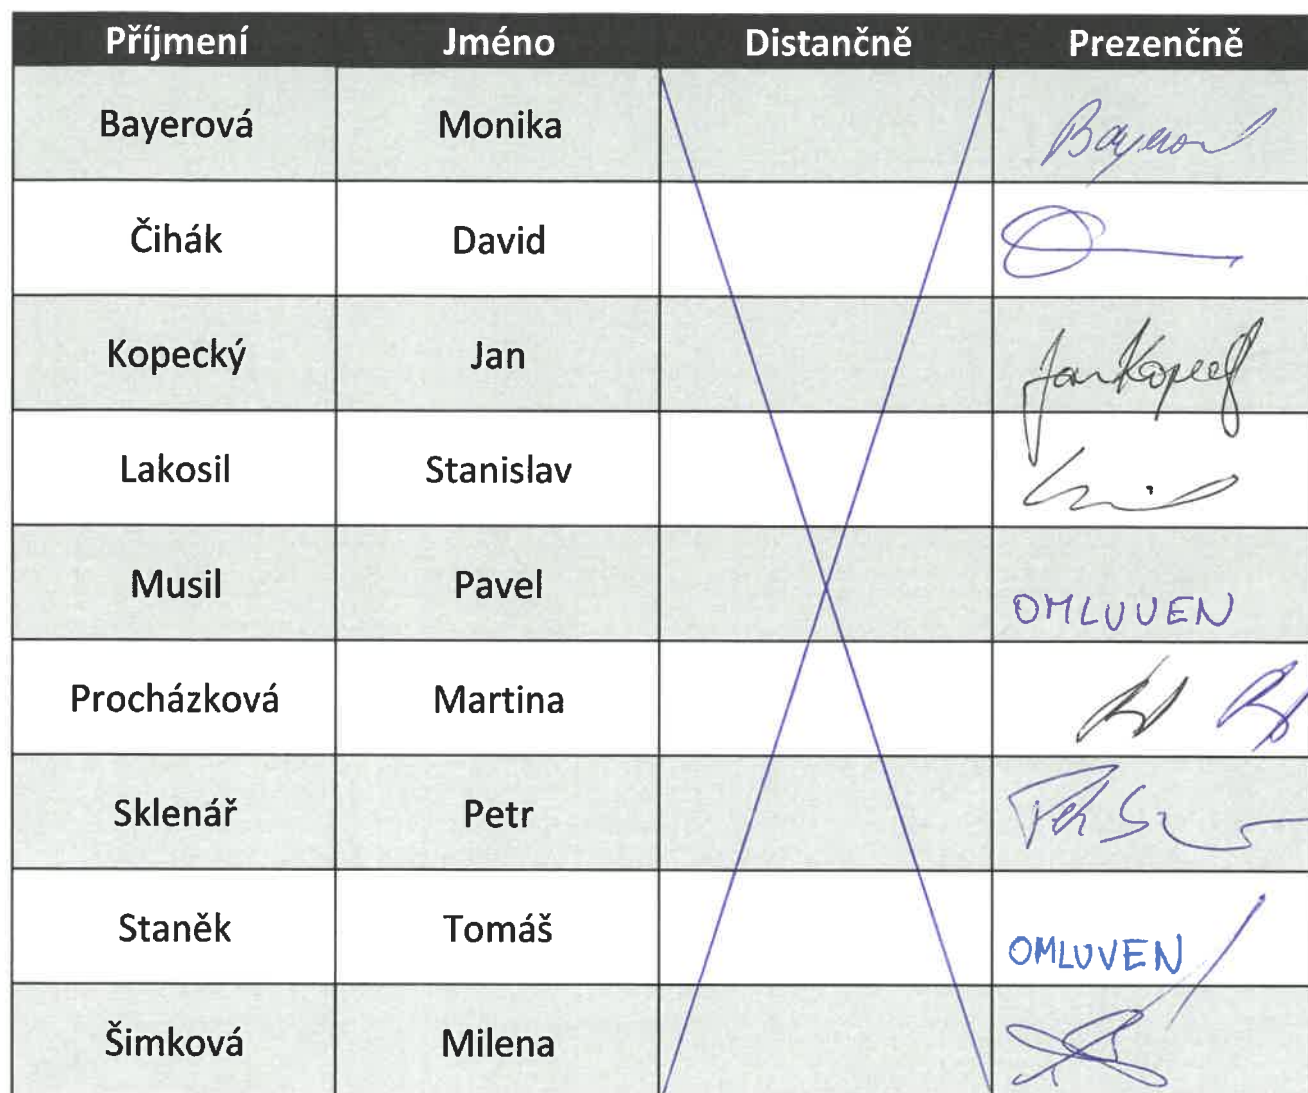 Příjmení Jméno Distančně Prezenčně
Bayerová Monika
Čihák David
Kopecký Jan Jan Kopecký
Lakosil Stanislav
Musil Pavel OMLUVEN
Procházková Martina
Sklenář Petr
Staněk Tomáš OMLUVEN
Šimková Milena